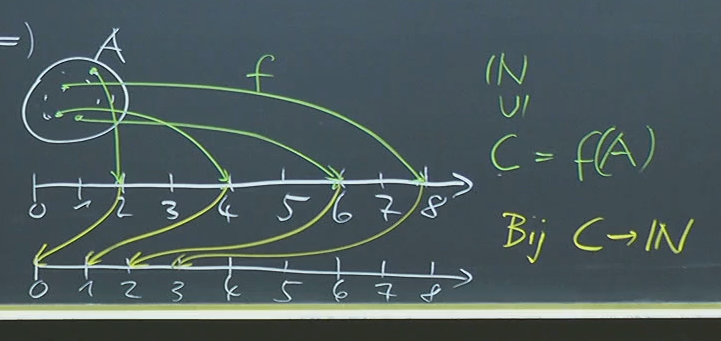 =)
A
f
0 1 2 3 4 5 6 7 8
0 1 2 3 4 5 6 7 8
IN
UI
C = f(A)
Bij C → IN